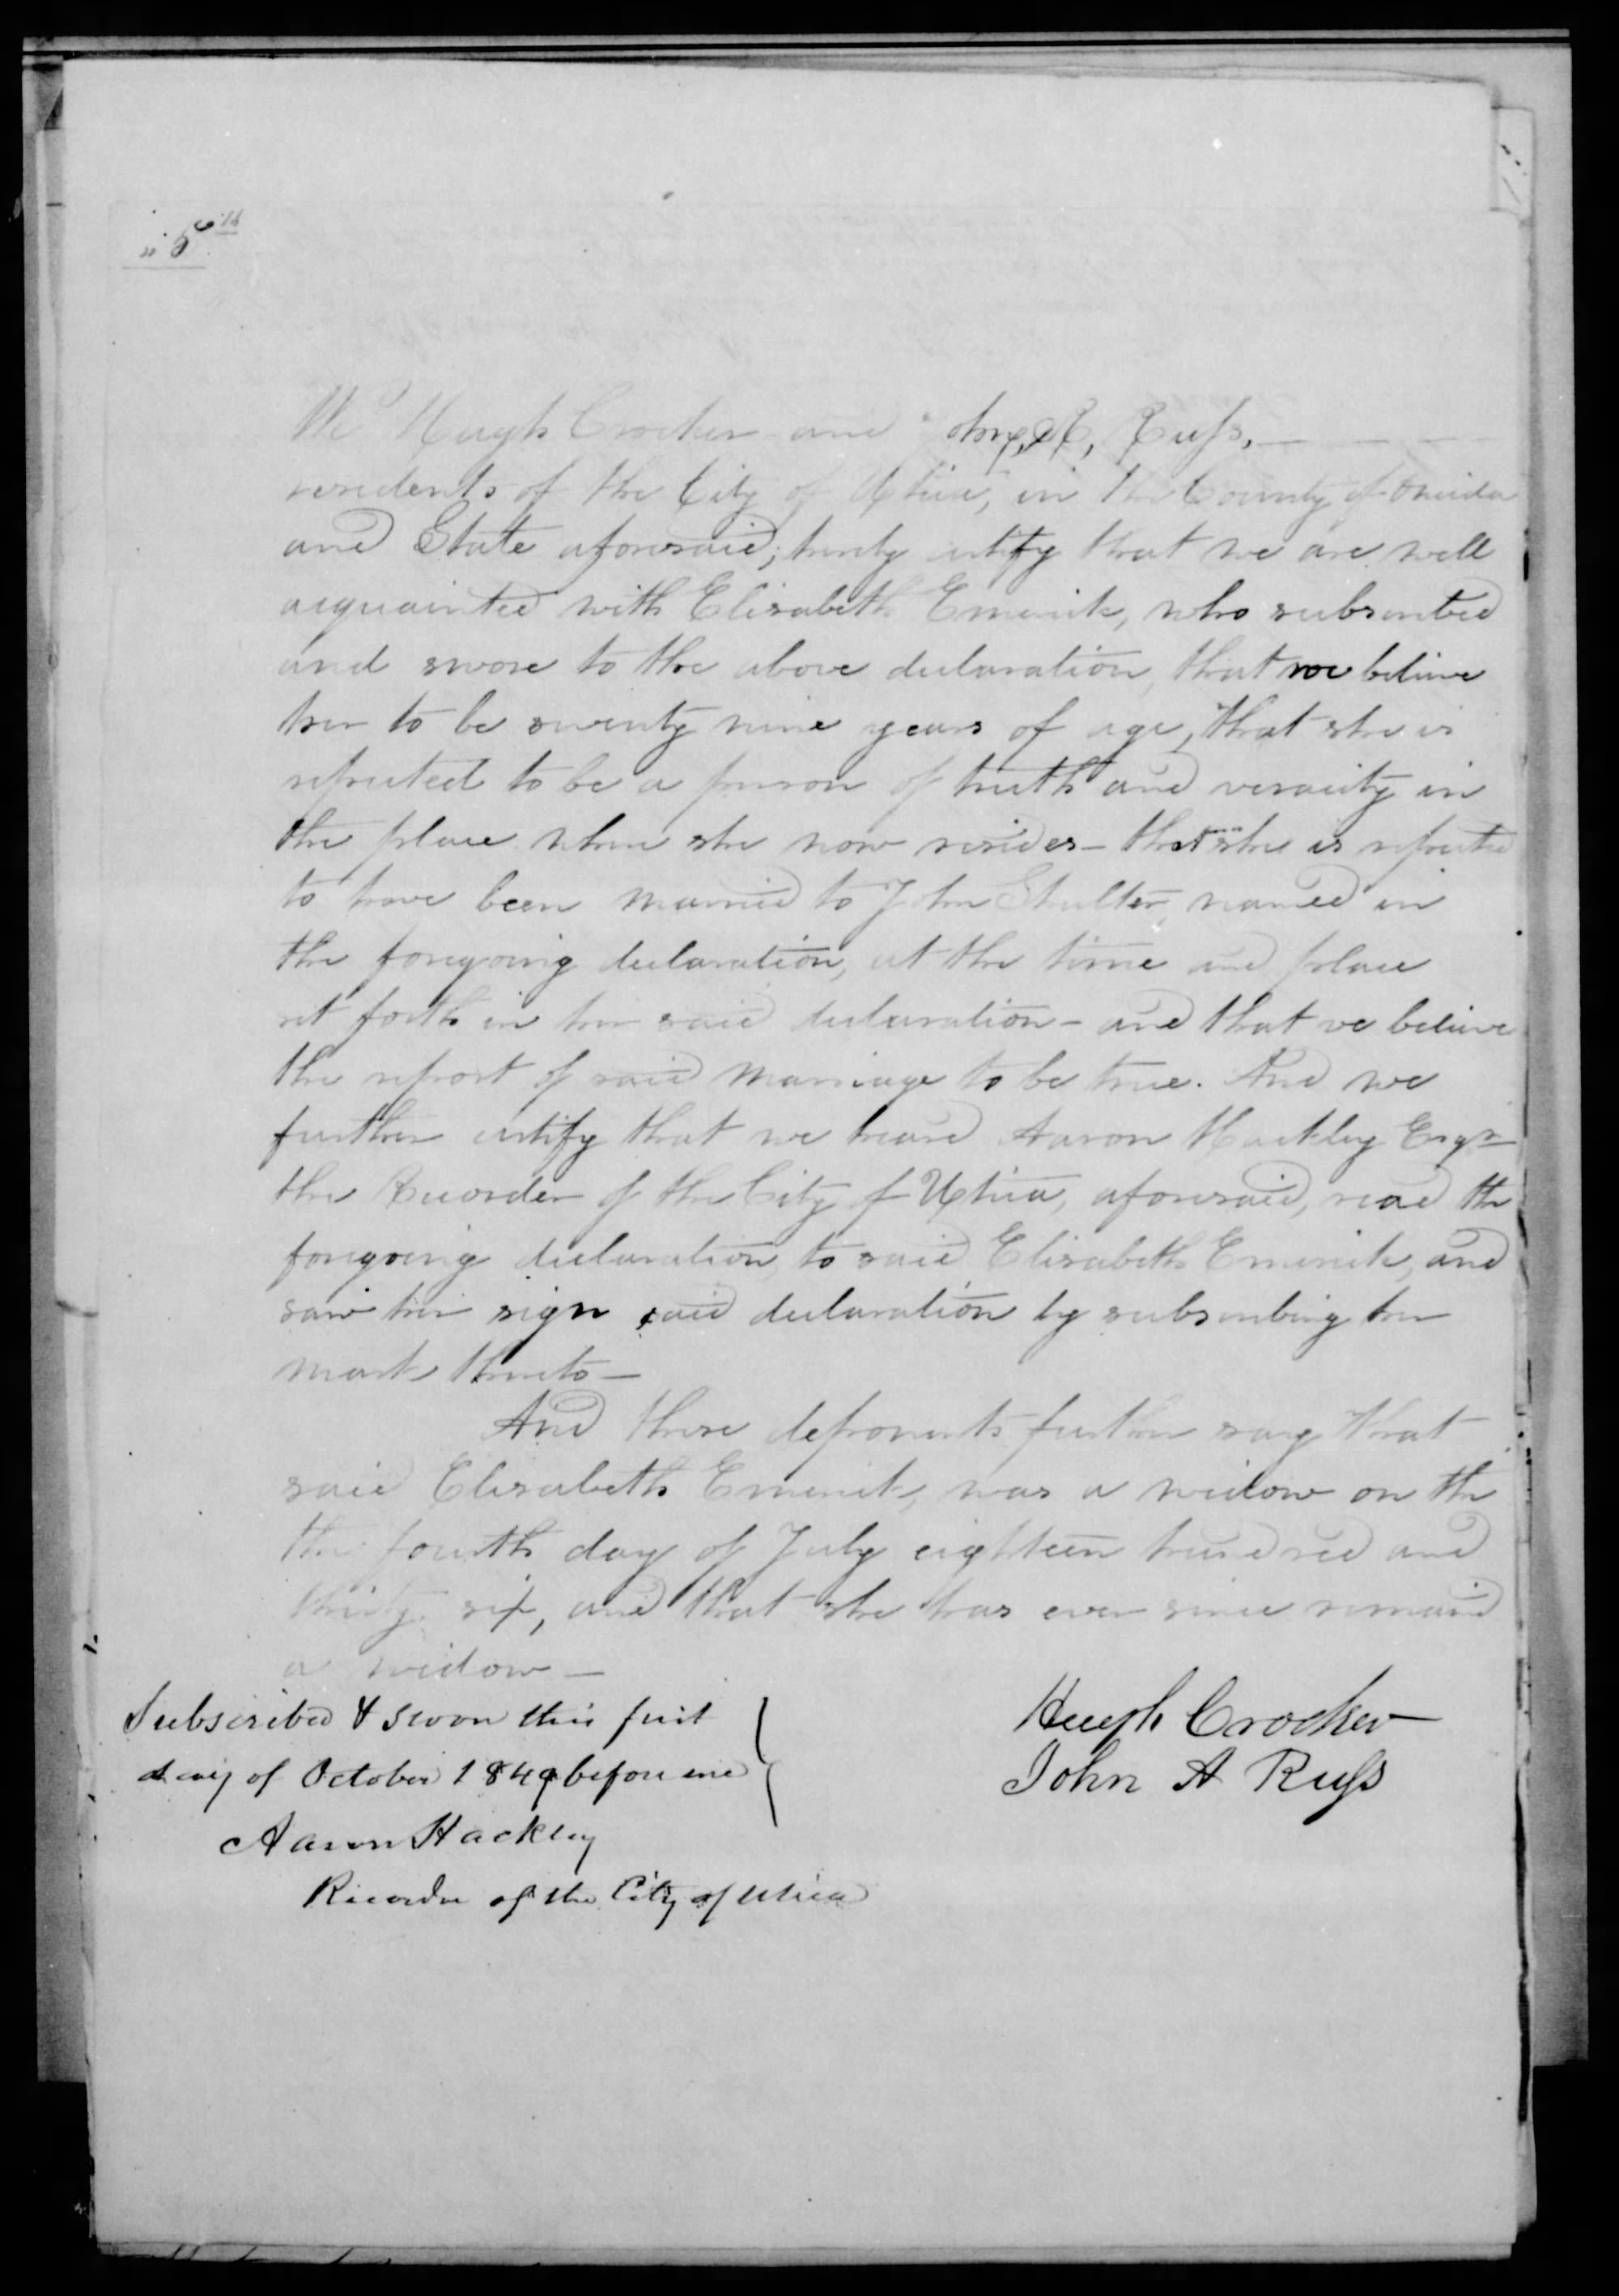 We Hugh Crocker and John A, Russ, — — —
residents of the City of Utica, in the County of Oneida
and State aforesaid; hereby certify that we are well
acquainted with Elisabeth Emerick, who subscribed
and swore to the above declaration, that we believe
her to be seventy nine years of age, that she is
reputed to be a person of truth and veracity in
the place where she now resides – that she is reputed
to have been married to John Shulter, named in
the foregoing declaration, at the time and place
set forth in her said declaration – and that we believe
the report of said marriage to be true. And we
further certify that we heard Aaron Hackley Esqr
the Recorder of the City of Utica, aforesaid, read the
foregoing declaration, to said Elisabeth Emerick, and
saw her sign said declaration by subscribing her
mark thereto –
And these deponents further say that
said Elisabeth Emerick, was a widow on the
the fourth day of July eighteen hundred and
thirty six, and that she has ever since remaind
a widow –
Subscribed & sworn this first
day of October 1849 before me
Aaron Hackley
Recorder of the City of Utica
Hugh Crocker
John A Russ